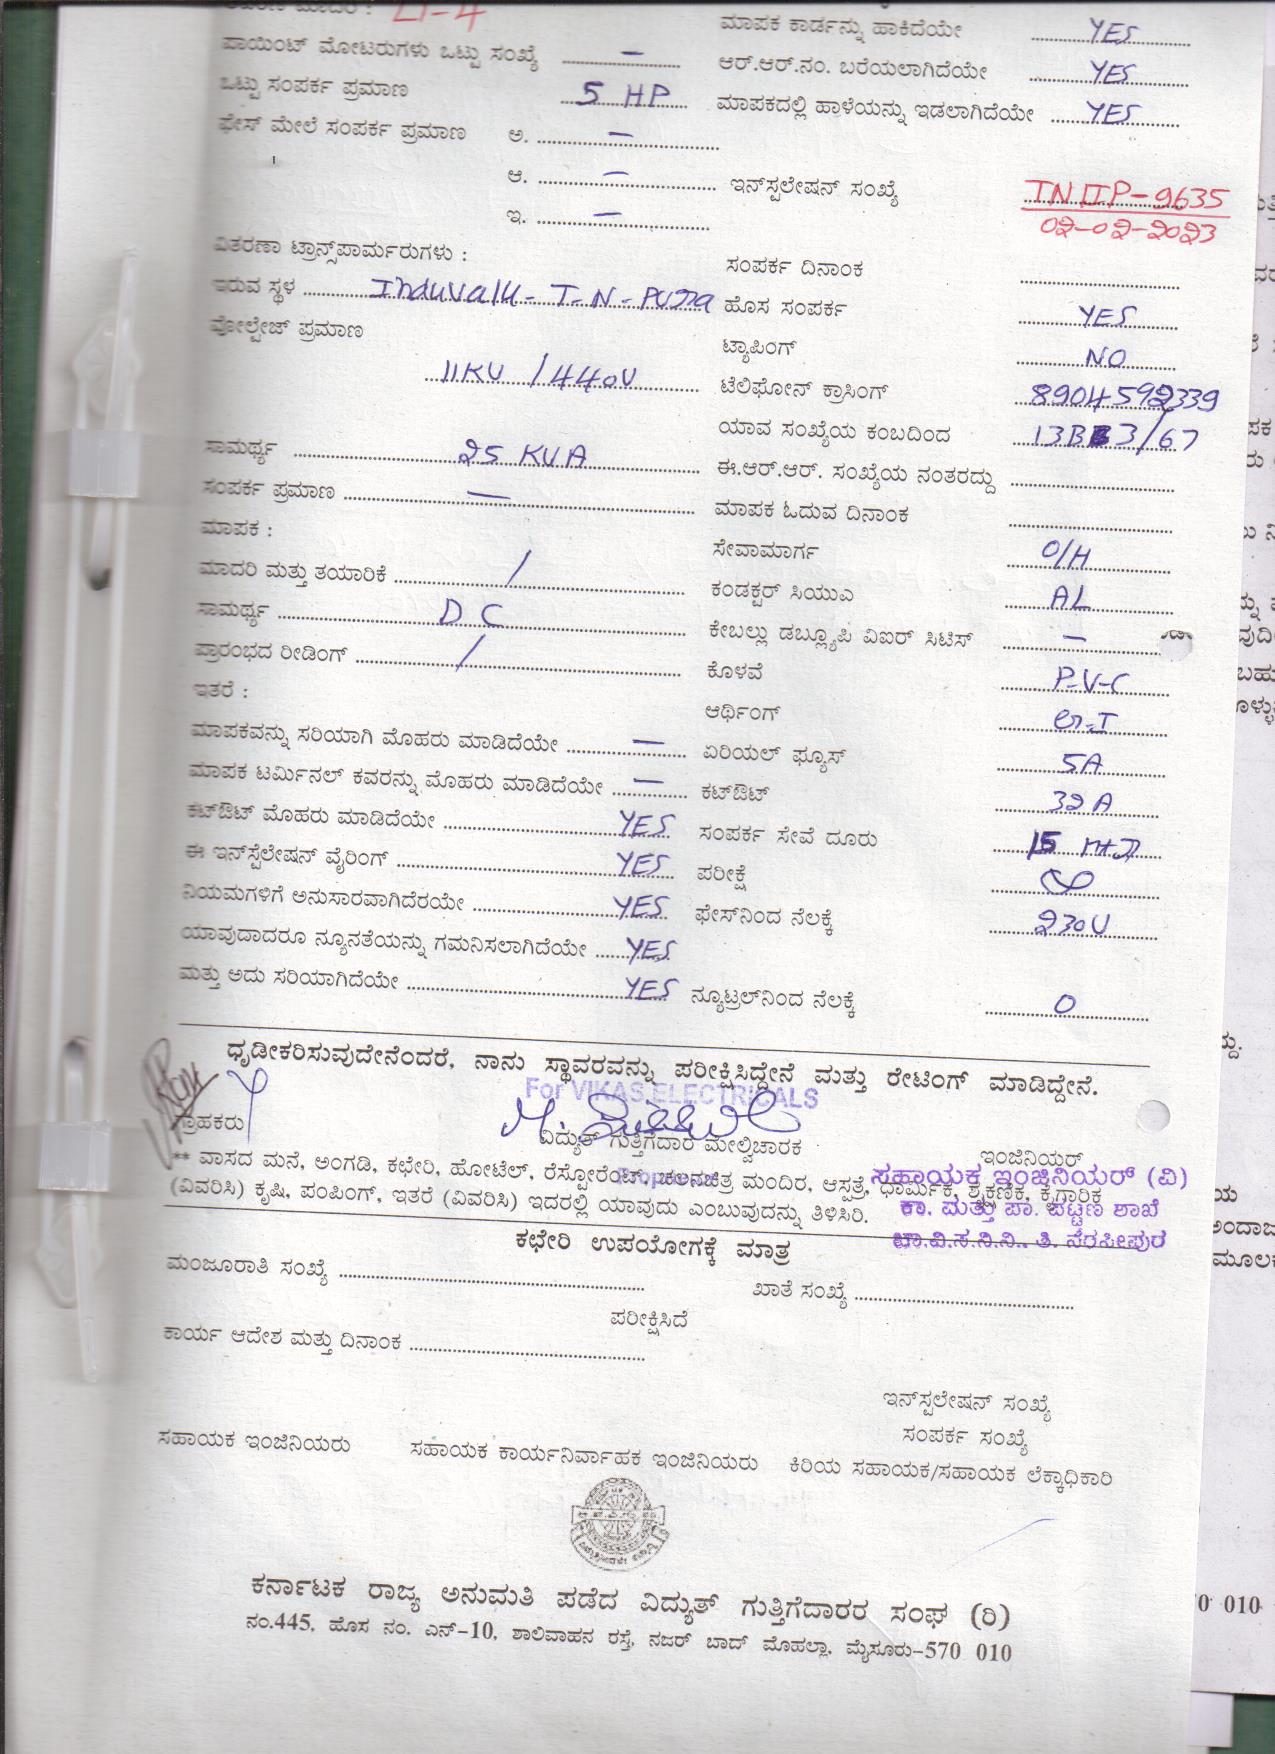 LT-4
ಪಾಯಿಂಟ್ ಮೋಟರುಗಳು ಒಟ್ಟು ಸಂಖ್ಯೆ —
ಒಟ್ಟು ಸಂಪರ್ಕ ಪ್ರಮಾಣ 5 HP
ಫೇಸ್ ಮೇಲೆ ಸಂಪರ್ಕ ಪ್ರಮಾಣ ಅ. —
ಆ. —
ಇ. —
ವಿತರಣಾ ಟ್ರಾನ್ಸ್‌ಪಾರ್ಮರುಗಳು :
ಇರುವ ಸ್ಥಳ Induvalu - T-N-Pura
ವೋಲ್ಟೇಜ್ ಪ್ರಮಾಣ
11KV / 440V
ಸಾಮರ್ಥ್ಯ 25 KVA
ಸಂಪರ್ಕ ಪ್ರಮಾಣ —
ಮಾಪಕ :
ಮಾದರಿ ಮತ್ತು ತಯಾರಿಕೆ /
ಸಾಮರ್ಥ್ಯ D C
ಪ್ರಾರಂಭದ ರೀಡಿಂಗ್ /
ಇತರೆ :
ಮಾಪಕವನ್ನು ಸರಿಯಾಗಿ ಮೊಹರು ಮಾಡಿದೆಯೇ —
ಮಾಪಕ ಟರ್ಮಿನಲ್ ಕವರನ್ನು ಮೊಹರು ಮಾಡಿದೆಯೇ —
ಕಟ್‌ಔಟ್ ಮೊಹರು ಮಾಡಿದೆಯೇ YES
ಈ ಇನ್‌ಸ್ಟೆಲೇಷನ್ ವೈರಿಂಗ್ YES
ನಿಯಮಗಳಿಗೆ ಅನುಸಾರವಾಗಿದೆರಯೇ YES
ಯಾವುದಾದರೂ ನ್ಯೂನತೆಯನ್ನು ಗಮನಿಸಲಾಗಿದೆಯೇ YES
ಮತ್ತು ಅದು ಸರಿಯಾಗಿದೆಯೇ YES
ಮಾಪಕ ಕಾರ್ಡನ್ನು ಹಾಕಿದೆಯೇ YES
ಆರ್.ಆರ್.ನಂ. ಬರೆಯಲಾಗಿದೆಯೇ YES
ಮಾಪಕದಲ್ಲಿ ಹಾಳೆಯನ್ನು ಇಡಲಾಗಿದೆಯೇ YES
ಇನ್‌ಸ್ಟಲೇಷನ್ ಸಂಖ್ಯೆ INIIP-9635
02-02-2023
ಸಂಪರ್ಕ ದಿನಾಂಕ
ಹೊಸ ಸಂಪರ್ಕ YES
ಟ್ಯಾಪಿಂಗ್ NO
ಟೆಲಿಫೋನ್ ಕ್ರಾಸಿಂಗ್ 8904592339
ಯಾವ ಸಂಖ್ಯೆಯ ಕಂಬದಿಂದ
ಈ.ಆರ್.ಆರ್. ಸಂಖ್ಯೆಯ ನಂತರದ್ದು
ಮಾಪಕ ಓದುವ ದಿನಾಂಕ
ಸೇವಾಮಾರ್ಗ O/H
ಕಂಡಕ್ಟರ್ ಸಿಯುಎ AL
ಕೇಬಲ್ಲು ಡಬ್ಲ್ಯೂಪಿ ವಿಐರ್ ಸಿಟಿಸ್ —
ಕೊಳವೆ P-V-C
ಆರ್ಥಿಂಗ್
ಏರಿಯಲ್ ಫ್ಯೂಸ್ 5A
ಕಟ್‌ಔಟ್ 32A
ಸಂಪರ್ಕ ಸೇವೆ ದೂರು 15
ಪರೀಕ್ಷೆ
ಫೇಸ್‌ನಿಂದ ನೆಲಕ್ಕೆ 230V
ನ್ಯೂಟ್ರಲ್‌ನಿಂದ ನೆಲಕ್ಕೆ 0
ಧೃಡೀಕರಿಸುವುದೇನೆಂದರೆ, ನಾನು ಸ್ಥಾವರವನ್ನು ಪರೀಕ್ಷಿಸಿದ್ದೇನೆ ಮತ್ತು ರೇಟಿಂಗ್ ಮಾಡಿದ್ದೇನೆ.
For VIKAS ELECTRICALS
ಗ್ರಾಹಕರು ವಿದ್ಯುತ್ ಗುತ್ತಿಗೆದಾರ ಮೇಲ್ವಿಚಾರಕ ಇಂಜಿನಿಯರ್
** ವಾಸದ ಮನೆ, ಅಂಗಡಿ, ಕಛೇರಿ, ಹೋಟೆಲ್, ರೆಸ್ಟೋರೆಂಟ್, ಚಲನಚಿತ್ರ ಮಂದಿರ, ಆಸ್ಪತ್ರೆ, ಧಾರ್ಮಿಕ, ಶೈಕ್ಷಣಿಕ, ಕೈಗಾರಿಕ
(ವಿವರಿಸಿ) ಕೃಷಿ, ಪಂಪಿಂಗ್, ಇತರೆ (ವಿವರಿಸಿ) ಇದರಲ್ಲಿ ಯಾವುದು ಎಂಬುವುದನ್ನು ತಿಳಿಸಿರಿ.
ಸಹಾಯಕ ಇಂಜಿನಿಯರ್ (ವಿ)
ಕಾ. ಮತ್ತು ಪಾ. ಪಟ್ಟಣ ಶಾಖೆ
ಚಾ.ವಿ.ಸ.ನಿ.ನಿ., ತಿ. ನರಸೀಪುರ
ಕಛೇರಿ ಉಪಯೋಗಕ್ಕೆ ಮಾತ್ರ
ಮಂಜೂರಾತಿ ಸಂಖ್ಯೆ ಖಾತೆ ಸಂಖ್ಯೆ
ಪರೀಕ್ಷಿಸಿದೆ
ಕಾರ್ಯ ಆದೇಶ ಮತ್ತು ದಿನಾಂಕ
ಇನ್‌ಸ್ಟಲೇಷನ್ ಸಂಖ್ಯೆ
ಸಂಪರ್ಕ ಸಂಖ್ಯೆ
ಸಹಾಯಕ ಇಂಜಿನಿಯರು ಸಹಾಯಕ ಕಾರ್ಯನಿರ್ವಾಹಕ ಇಂಜಿನಿಯರು ಕಿರಿಯ ಸಹಾಯಕ/ಸಹಾಯಕ ಲೆಕ್ಕಾಧಿಕಾರಿ
ಕರ್ನಾಟಕ ರಾಜ್ಯ ಅನುಮತಿ ಪಡೆದ ವಿದ್ಯುತ್ ಗುತ್ತಿಗೆದಾರರ ಸಂಘ (ರಿ)
ನಂ.445, ಹೊಸ ನಂ. ಎನ್-10, ಶಾಲಿವಾಹನ ರಸ್ತೆ, ನಜರ್ ಬಾದ್ ಮೊಹಲ್ಲಾ, ಮೈಸೂರು-570 010